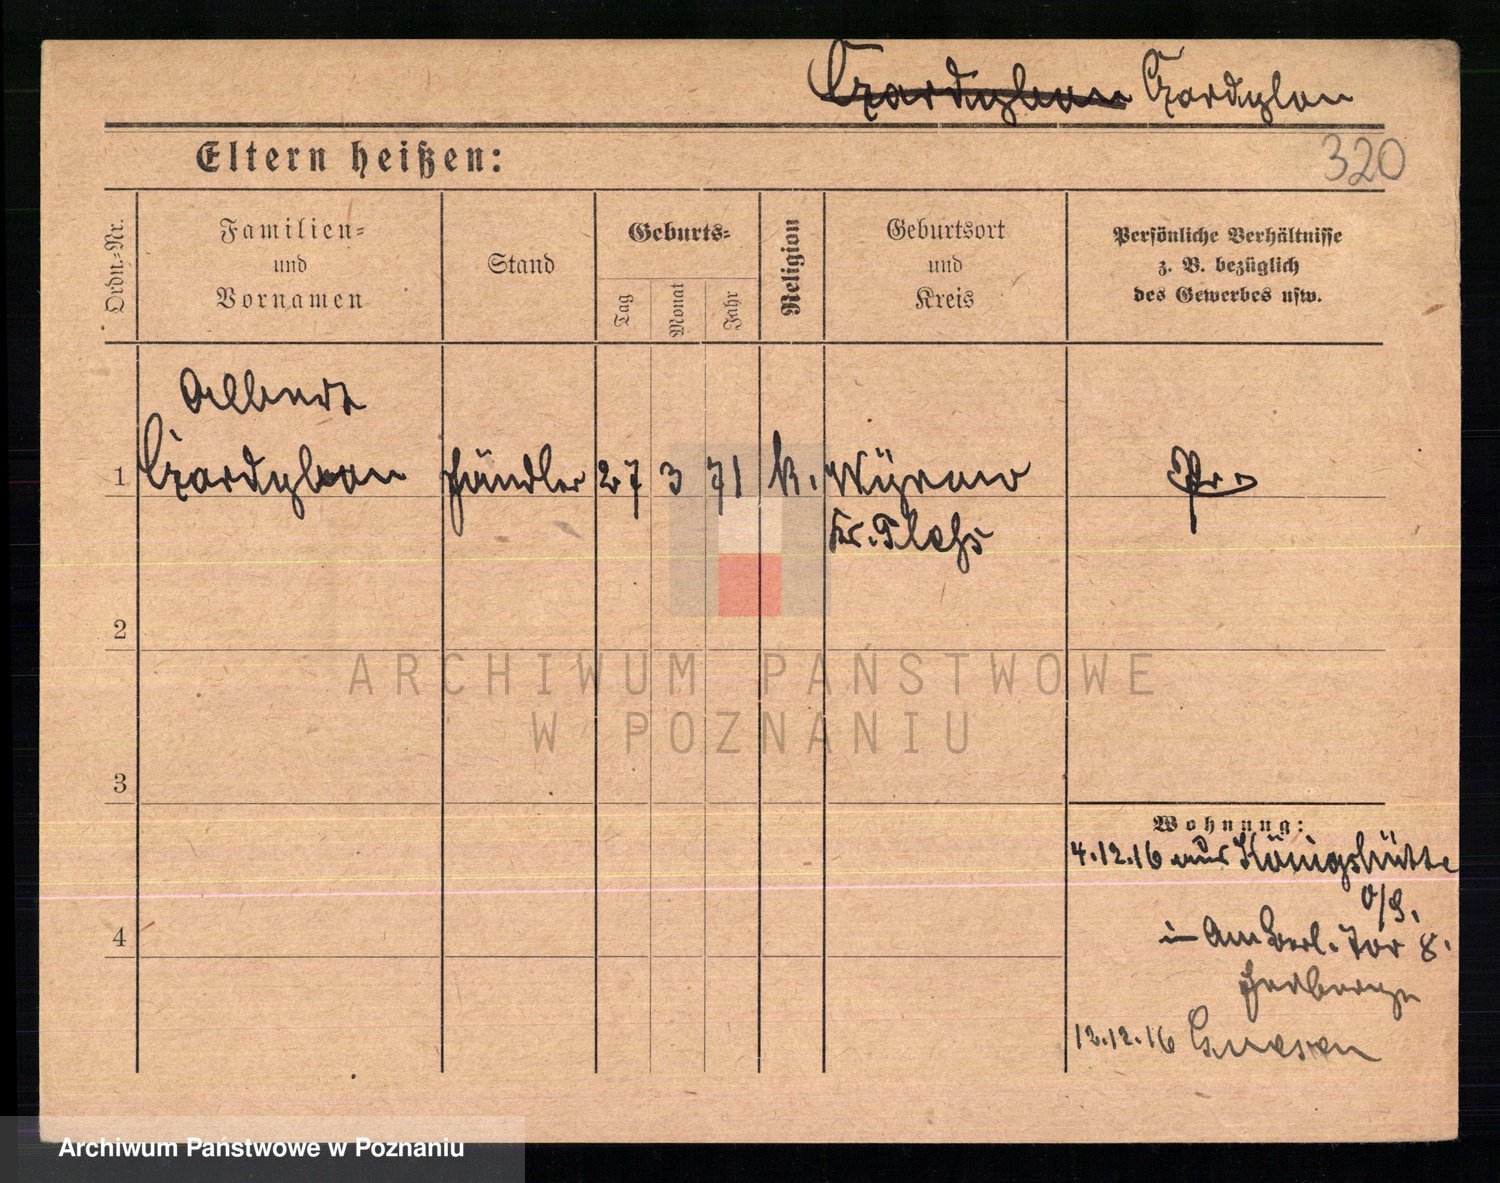 Czardybon
Eltern heißen:
320
Ordn.-Nr.
Familien-
und
Vornamen
Stand
Geburts-
Tag
Monat
Jahr
Religion
Geburtsort
und
Kreis
Persönliche Verhältnisse
z. B. bezüglich
des Gewerbes usw.
Albert
1 Czardybon Händler 27 3 71 k. Wyrow Pr.
Kr. Pleß
2
3
4
Wohnung:
4.12.16 aus Königshütte
O/S.
in Am Berl. Tor 8.
Herberge
12.12.16 Gnesen
ARCHIWUM PAŃSTWOWE
W POZNANIU
Archiwum Państwowe w Poznaniu